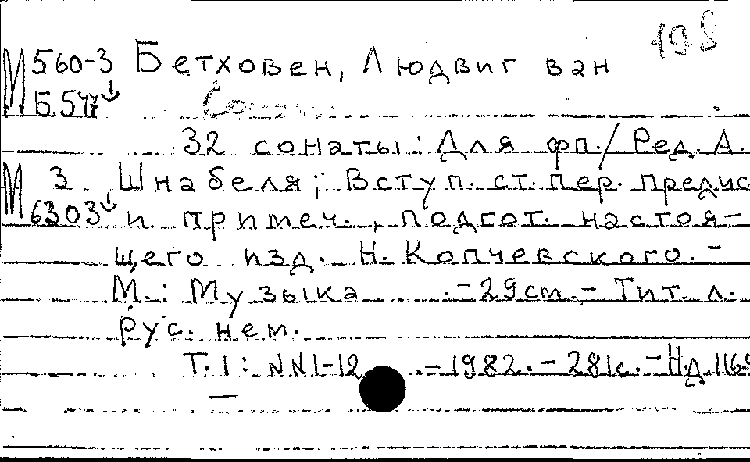 198
М 560-3 Бетховен, Людвиг ван
Б.577
32 сонаты: Для фп./ Ред. А.
М 3 Шнабеля; Вступ. ст. пер. предис
6303 и примеч., подгот. настоя-
щего изд. Н. Копчевского. -
М.: Музыка - 29 cm. - Тит. л.
рус. нем.
Т. 1: NN 1-12 - 1982. - 281 с. - Н.д.